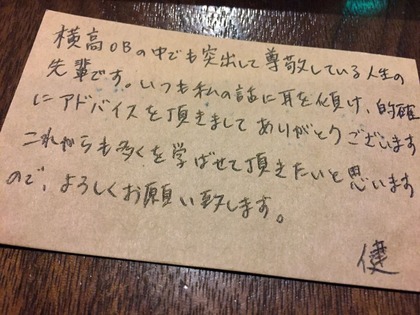 横高OBの中でも突出して尊敬している人生の
先輩です。いつも私の話に耳を傾け、的確
にアドバイスを頂きましてありがとうございます
これからも多くを学ばせて頂きたいと思います
ので、よろしくお願い致します。
健